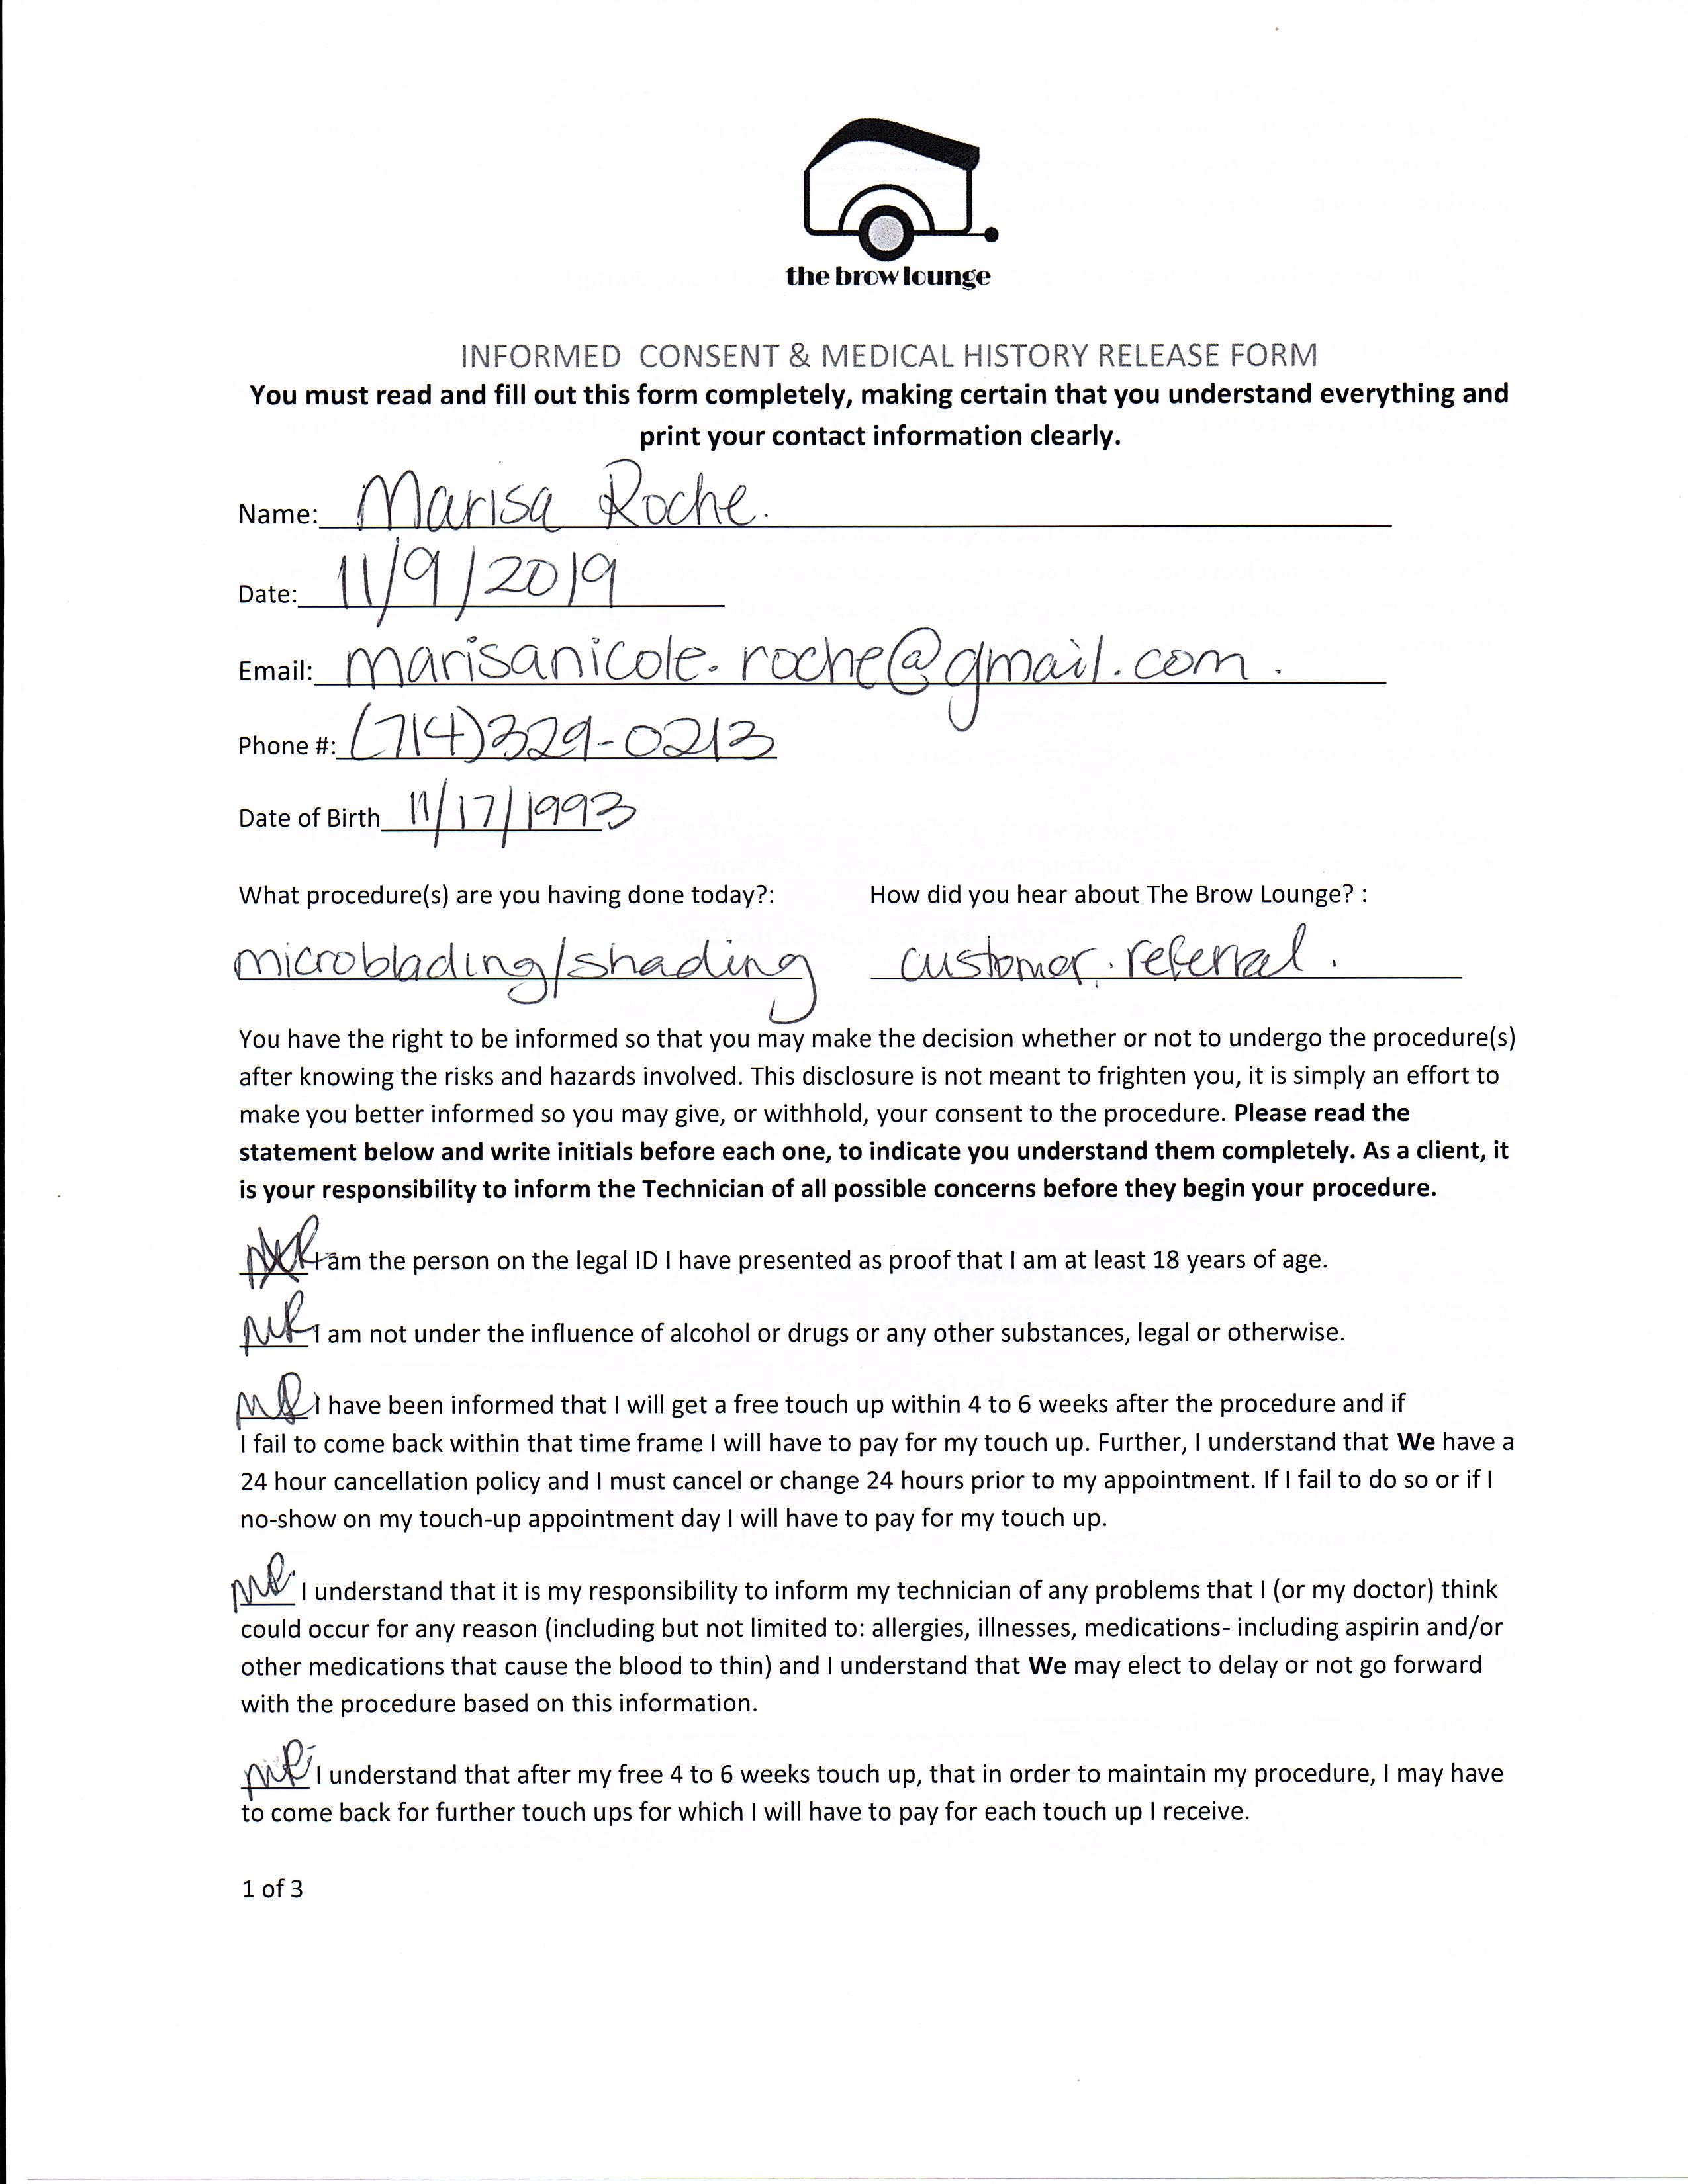 the brow lounge
INFORMED CONSENT & MEDICAL HISTORY RELEASE FORM
You must read and fill out this form completely, making certain that you understand everything and
print your contact information clearly.
Name: Marisa Roche.
Date: 11/9/2019
Email: marisanicole.roche@gmail.com.
Phone #: (714)329-0213
Date of Birth 11/17/1993
What procedure(s) are you having done today?: How did you hear about The Brow Lounge? :
microblading/shading customer referral.
You have the right to be informed so that you may make the decision whether or not to undergo the procedure(s)
after knowing the risks and hazards involved. This disclosure is not meant to frighten you, it is simply an effort to
make you better informed so you may give, or withhold, your consent to the procedure. Please read the
statement below and write initials before each one, to indicate you understand them completely. As a client, it
is your responsibility to inform the Technician of all possible concerns before they begin your procedure.
I am the person on the legal ID I have presented as proof that I am at least 18 years of age.
MR I am not under the influence of alcohol or drugs or any other substances, legal or otherwise.
MR I have been informed that I will get a free touch up within 4 to 6 weeks after the procedure and if
I fail to come back within that time frame I will have to pay for my touch up. Further, I understand that We have a
24 hour cancellation policy and I must cancel or change 24 hours prior to my appointment. If I fail to do so or if I
no-show on my touch-up appointment day I will have to pay for my touch up.
MR I understand that it is my responsibility to inform my technician of any problems that I (or my doctor) think
could occur for any reason (including but not limited to: allergies, illnesses, medications- including aspirin and/or
other medications that cause the blood to thin) and I understand that We may elect to delay or not go forward
with the procedure based on this information.
MR I understand that after my free 4 to 6 weeks touch up, that in order to maintain my procedure, I may have
to come back for further touch ups for which I will have to pay for each touch up I receive.
1 of 3